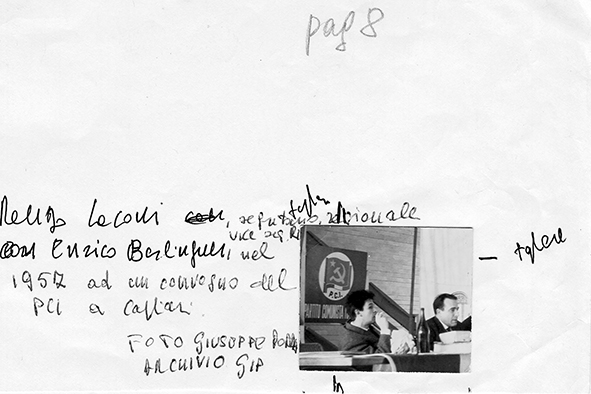 pag 8
Renzo Laconi con, segretario regionale
vice seg. R
con Enrico Berlinguer, nel
1957 ad un convegno del
PCI a Cagliari.
FOTO GIUSEPPE
ARCHIVIO GIP
P.C.I.